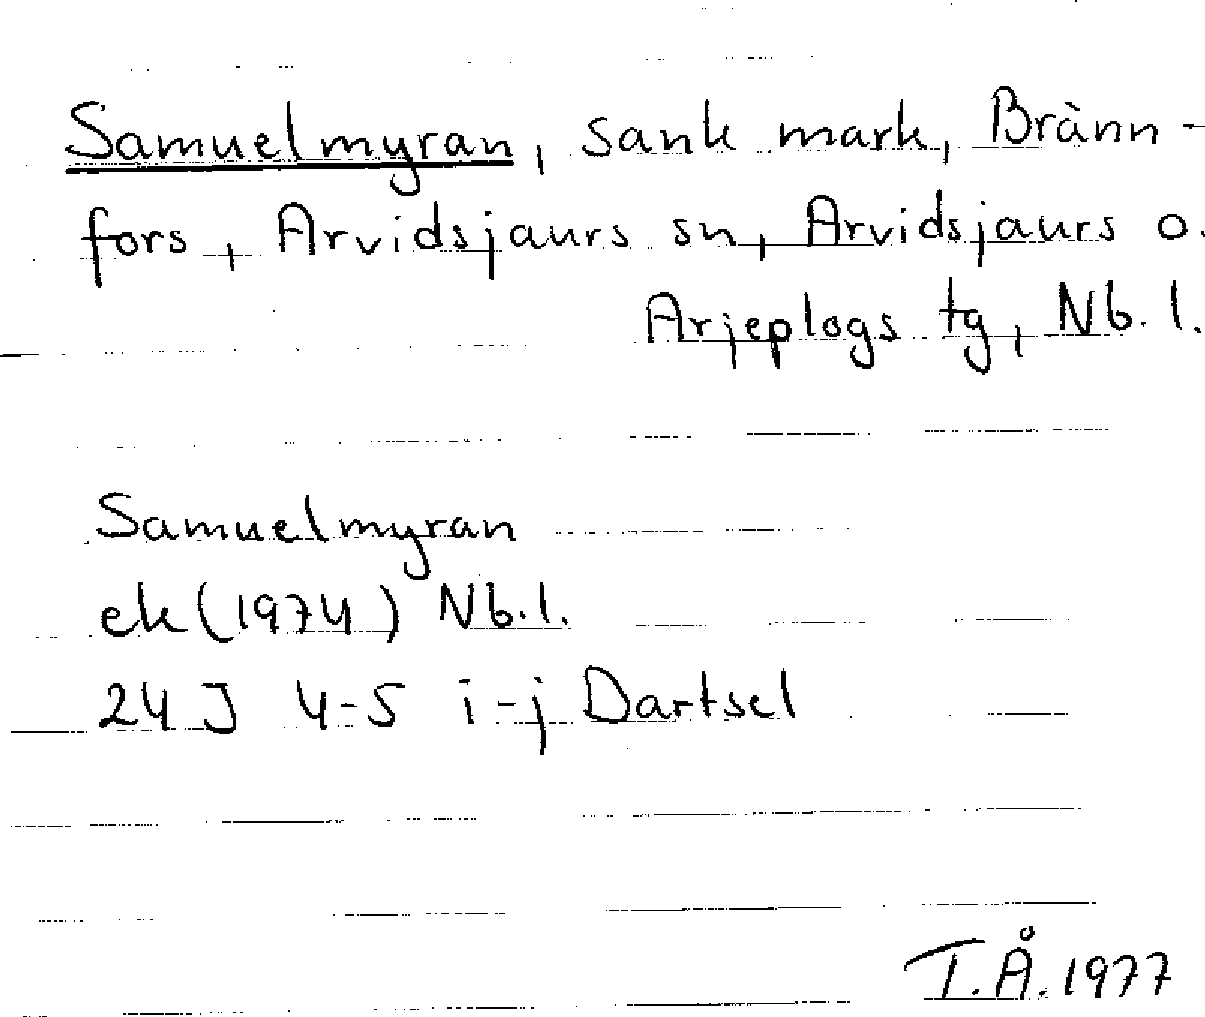 Samuelmyran, sank mark, Bränn-
fors, Arvidsjaurs sn, Arvidsjaurs o.
Arjeplogs tg, Nb. l.
Samuelmyran
ek (1974) Nb.l.
24 J 4-5 i-j Dartsel
T.Å. 1977